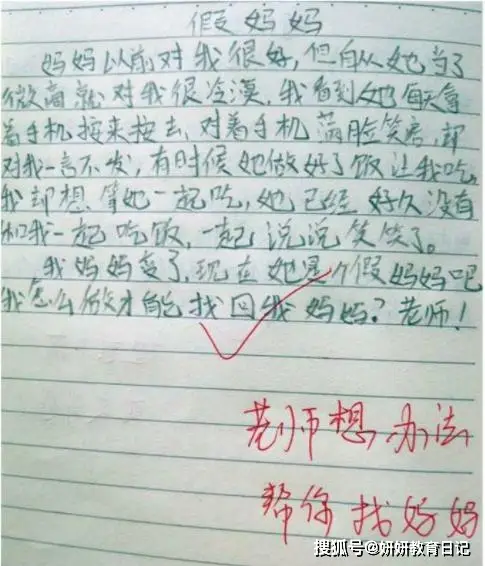 假妈妈
妈妈以前对我很好,但自从她当了
微商就对我很冷漠.我看到她每天拿
着手机按来按去,对着手机满脸笑容,却
对我一言不发,有时候她做好了饭让我吃。
我却想等她一起吃,她已经好久没有
和我一起吃饭,一起说说笑笑了。
我妈妈变了,现在她是个假妈妈吧
我怎么做才能找回我妈妈?老师!
老师想办法
帮你找妈妈
搜狐号@妍妍教育日记